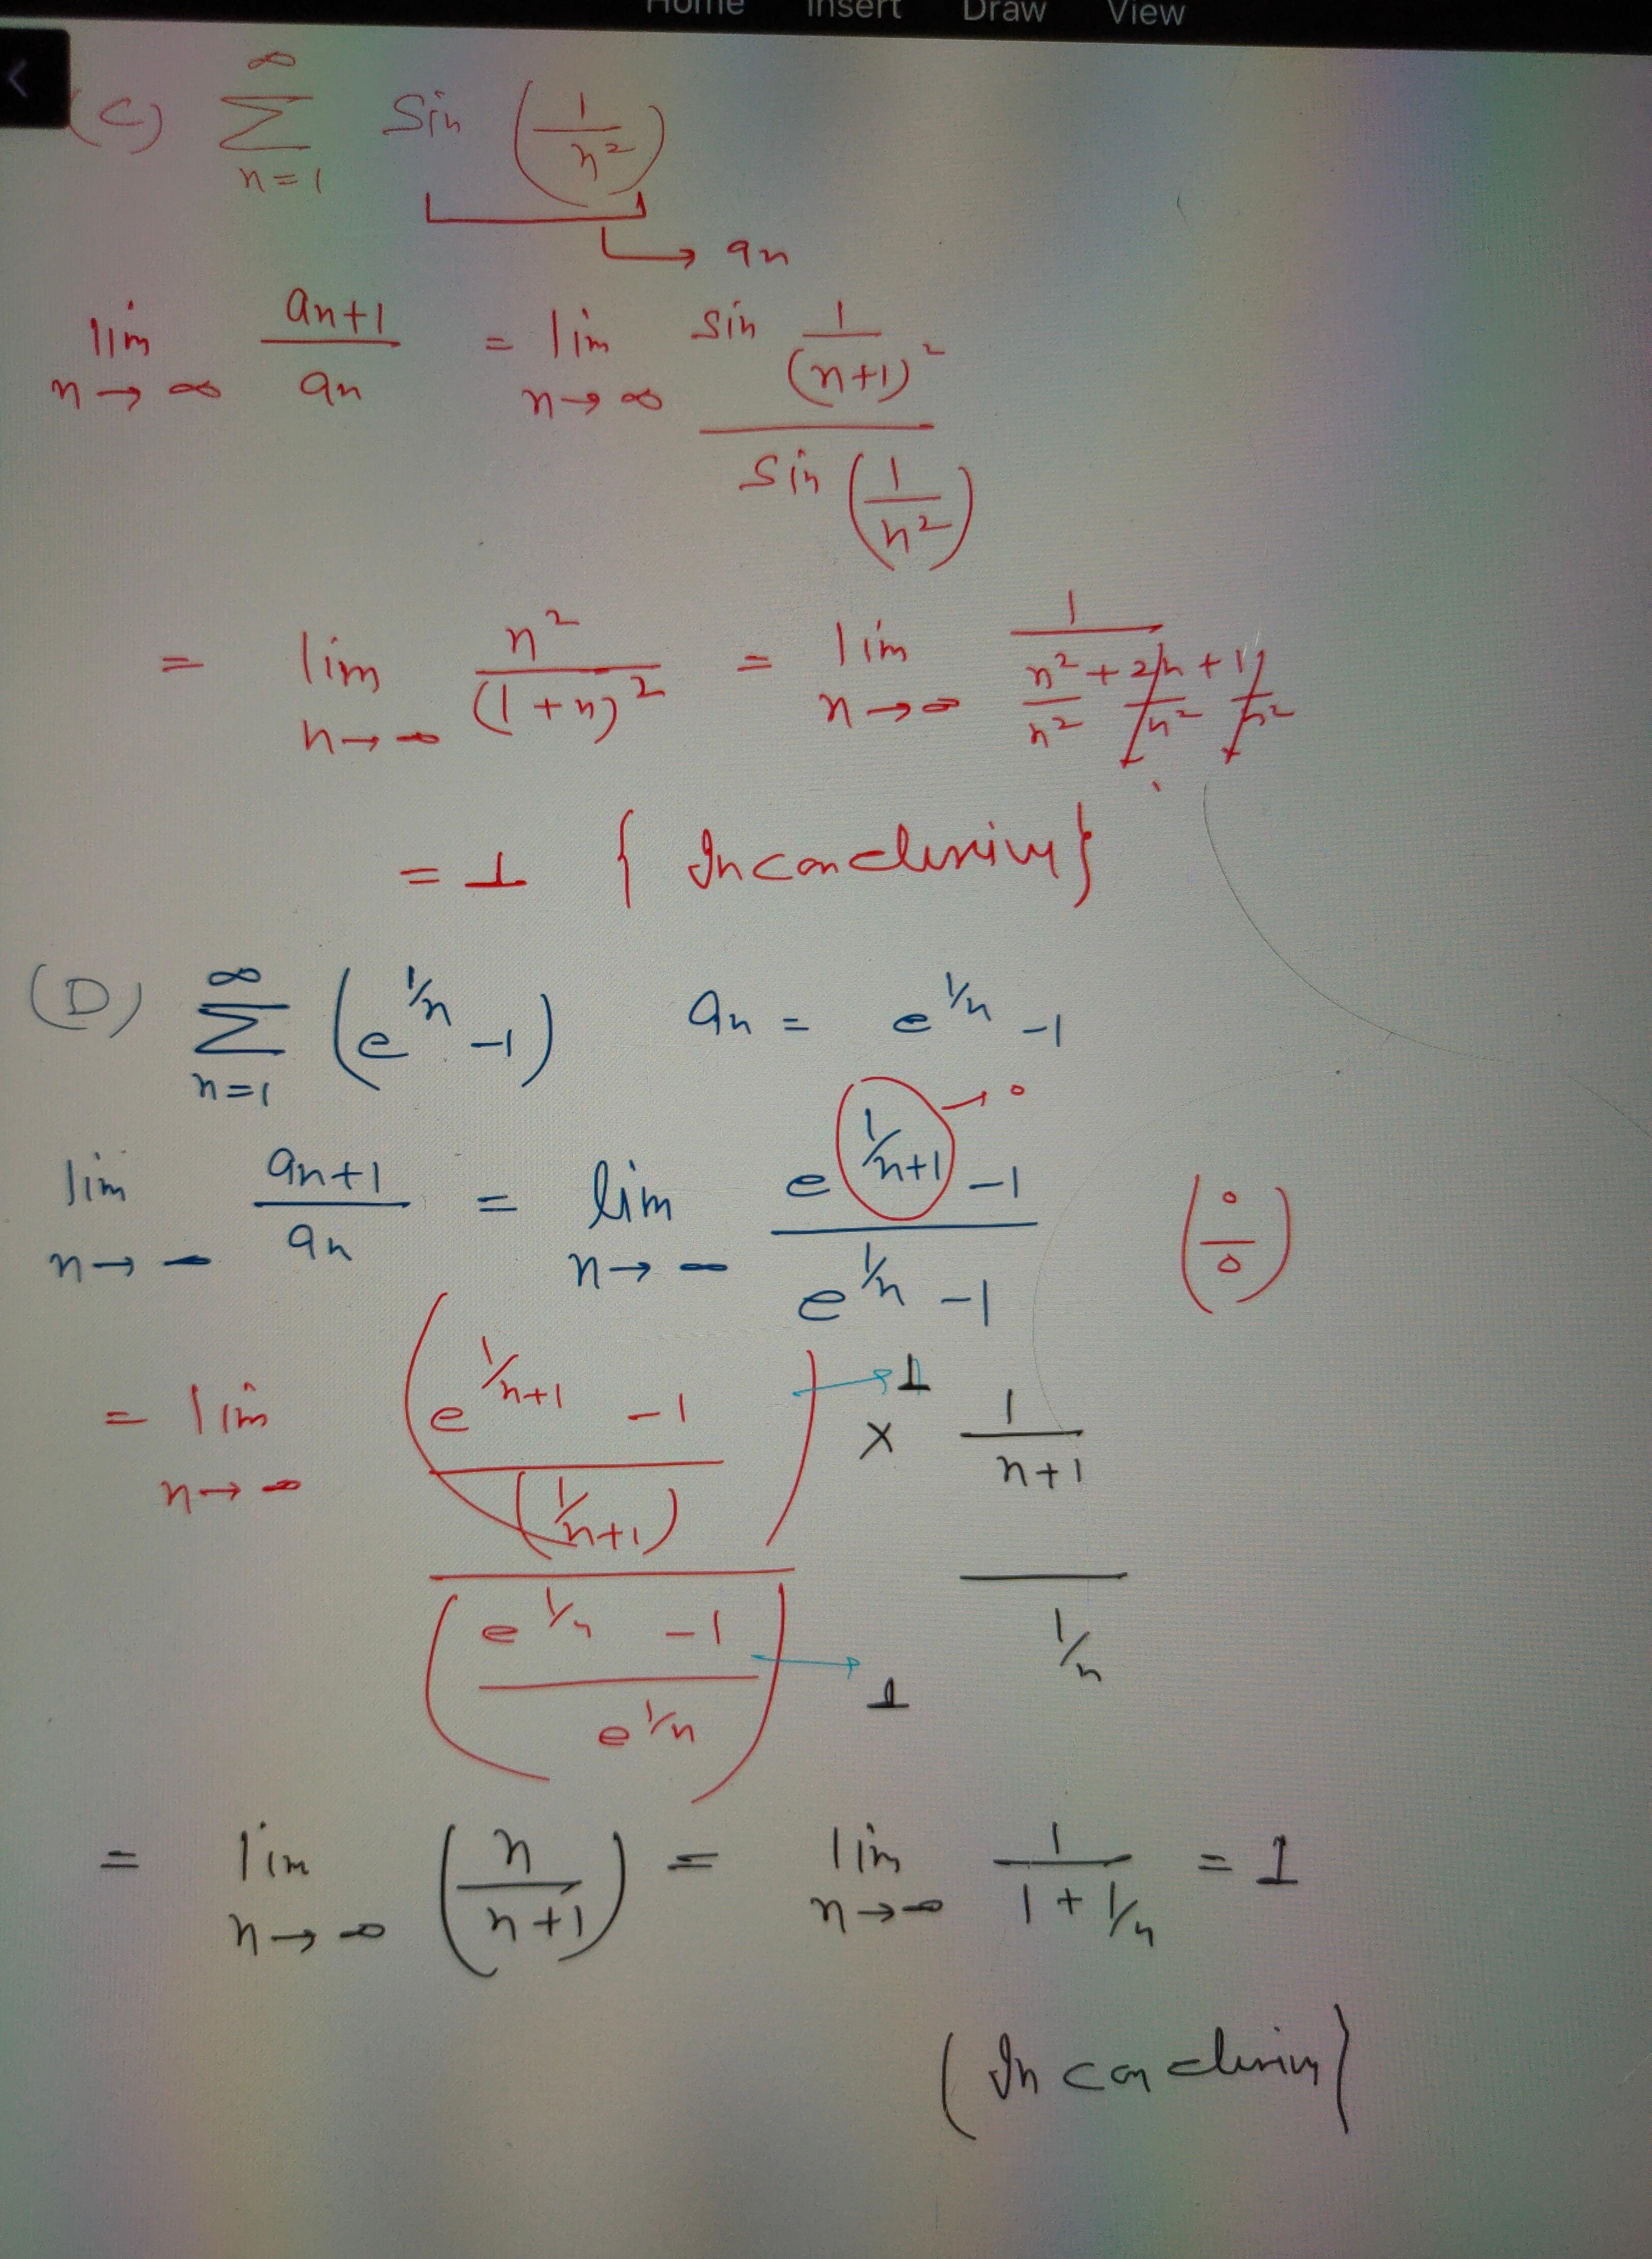 Home Insert Draw View
(C) ∞ ∑ n=1 Sin (1/n²)
→ an
lim n→∞ an+1/an = lim n→∞ sin 1/(n+1)² / sin (1/n²)
= lim n→∞ n²/(1+n)² = lim n→∞ 1/(n²/n² + 2n/n² + 1/n²)
= 1 { Inconclusive }
(D) ∞ ∑ n=1 (e^1/n -1) an = e^1/n -1
lim n→∞ an+1/an = lim n→∞ (e^1/n+1 -1)/(e^1/n -1) → 0 (0/0)
= lim n→∞ ((e^1/n+1 -1)/(1/n+1)) → 1 × 1/n+1
((e^1/n -1)/e^1/n) → 1 1/n
= lim n→∞ (n/n+1) = lim n→∞ 1/(1+1/n) = 1
(Inconclusive)